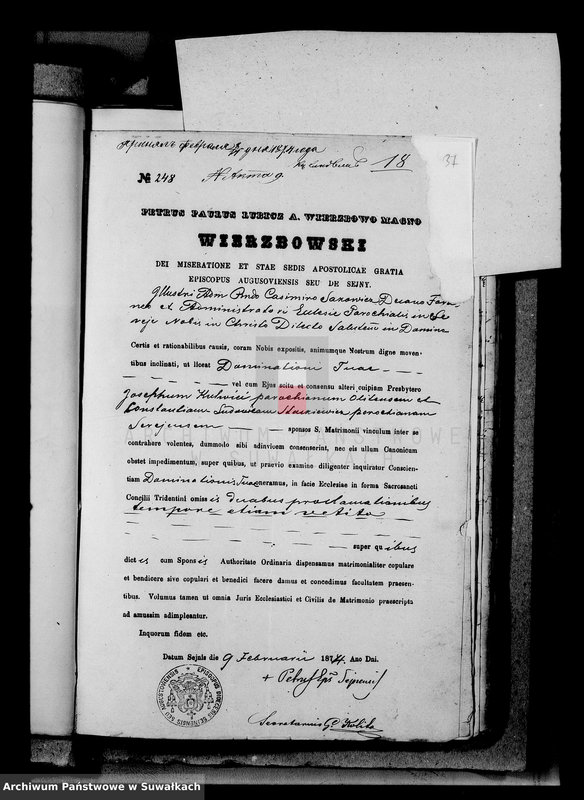 18
37
№ 248
PETRUS PAULUS LUBICZ A. WIERZBOWO MAGNO
WIERZBOWSKI
DEI MISERATIONE ET STAE SEDIS APOSTOLICAE GRATIA
EPISCOPUS AUGUSOVIENSIS SEU DE SEJNY.
Illustri Adm Rndo Casimiro Decano
et Administratori Eclesie Parochialis in
Nobis in Christo Dilecto Salutem in Domino
Certis et rationabilibus causis, coram Nobis expositis, animumque Nostrum digne moven-
tibus inclinati, ut liceat Dominationi Tuae
vel cum Ejus scitu et consensu alteri cuipiam Presbytero
Josephum parochianum Olitensem et
Constantiam parochianam
Serejensem sponsos S. Matrimonii vinculum inter se
contrahere volentes, dummodo sibi adinvicem consenserint, nec eis ullum Canonicum
obstet impedimentum, super quibus, ut praevio examine diligenter inquiratur Conscien-
tiam Dominationis Tuae oneramus, in facie Ecclesiae in forma Sacrosancti
Concilii Tridentini omissis duabus proclamationibus
tempore etiam vetito
super quibus
dictis cum Sponsis Authoritate Ordinaria dispensamus matrimonialiter copulare
et bendicere sive copulari et benedici facere damus et concedimus facultatem praesen-
tibus. Volumus tamen ut omnia Juris Ecclesiastici et Civilis de Matrimonio praescripta
ad amussim adimpleantur.
Inquorum fidem etc.
Datum Sejnis die 9 Februarii 1874. Ano Dni.
+ Petrus Eps Sejnensis
Secretarius
ARCHIWUM PAŃSTWOWE
W SUWAŁKACH
Archiwum Państwowe w Suwałkach